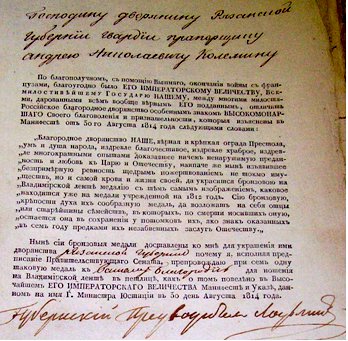 Господину дворянину Рязанской
Губернии Гвардіи прапорщику
Андрею Николаевичу Колемину
По благополучномъ, съ помощію Вышняго, окончаніи войны съ фран-
цузами, благоугодно было ЕГО ИМПЕРАТОРСКОМУ ВЕЛИЧЕСТВУ, Все-
милостивѣйшему ГОСУДАРЮ НАШЕМУ, между многими милостя-
ми, дарованными всѣмъ вообще вѣрнымъ ЕГО подданнымъ, означить
Россійское благородное дворянство особеннымъ знакомъ ВЫСОКОМОНАР-
ШАГО Своего благоволенія и признательности, которыя изъяснены въ
Манифестѣ онъ 30-го Августа 1814 года слѣдующими словами:
„Благородное дворянство НАШЕ, вѣрная и крѣпкая ограда Престола,
умъ и душа народа, издревле благочестивое, издревле храброе, издрев-
ле многократными опытами доказавшее ничѣмъ ненарушимую предан-
ность и любовь къ Царю и Отечеству, наипаче же нынѣ изъявившее
безпримѣрную ревность щедрымъ пожертвованіемъ не токмо иму-
ществъ, но и самой крови и жизни своей, да украсится бронзовою на
Владимірской лентѣ медалію съ тѣмъ самымъ изображеніемъ, каковое
находится уже на медали учрежденной на 1812 годъ. Сію бронзовую,
крѣпости духа ихъ сообразную медаль, да возложатъ на себя отцы
или старѣйшины семействъ, въ которыхъ, по смерти носившихъ оную,
остается она въ сохраненіи у потомковъ ихъ, яко знакъ оказанныхъ
въ семъ году предками ихъ незабвенныхъ заслугъ Отечеству„.
Нынѣ сіи бронзовыя медали доставлены ко мнѣ для украшенія ими
дворянства Рязанской Губерніи почему я, исполняя пред-
писаніе Правительствующаго Сената, препровождаю при семъ одну
таковую медаль къ для ношенія
на Владимірской лентѣ въ петлицѣ, какъ о томъ повелѣно въ Высо-
чайшемъ ЕГО ИМПЕРАТОРСКАГО ВЕЛИЧЕСТВА Манифестѣ и Указѣ, дан-
номъ на имя Г. Министра Юстиціи въ 30 день Августа 1814 года.
Губернскій Предводитель